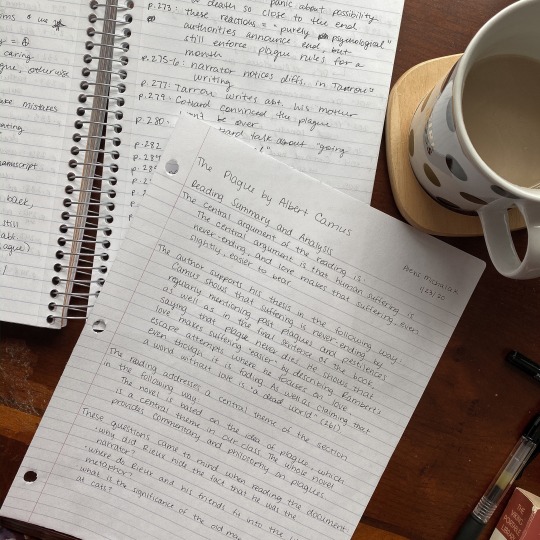 panic about possibility
of death so close to the end
p.273: these reactions = "purely psychological"
authorities announce end, but
still enforce plague rules for a
month
p.275-6: narrator notices diffs. in Tarrou's
writing
p.277: Tarrou writes abt. his mother
p.279: Cottard convinced the plague
won't be over
p.280: talk about "going
p.282
p.284
caring
otherwise
mistakes
manuscript
back,
still
The Plague by Albert Camus
9/23/20
Reading Summary and Analysis
The central argument of the reading is:
The central argument is that human suffering is
never-ending, and love makes that suffering, even
slightly, easier to bear.
The author supports his thesis in the following way:
Camus shows that suffering is never-ending by
regularly mentioning past plagues and pestilences
as well as in the final sentence of the book
saying that plague never dies. He shows that
love makes suffering easier by describing Rambert's
escape attempts where he focuses on love
even though it is fading. As well as claiming that
a world without love is "a dead world" (261)
The reading addresses a central theme of the section
in the following way:
The novel is based on the idea of plague, which
is a central theme in our class. The whole novel
provides commentary and philosophy on plagues.
These questions came to mind when reading the document
why did Rieux hide the fact that he was the
narrator?
where do Rieux and his friends fit into the
metaphor?
what is the significance of the old man
at cats?
THE
VIKING
PORTABLE